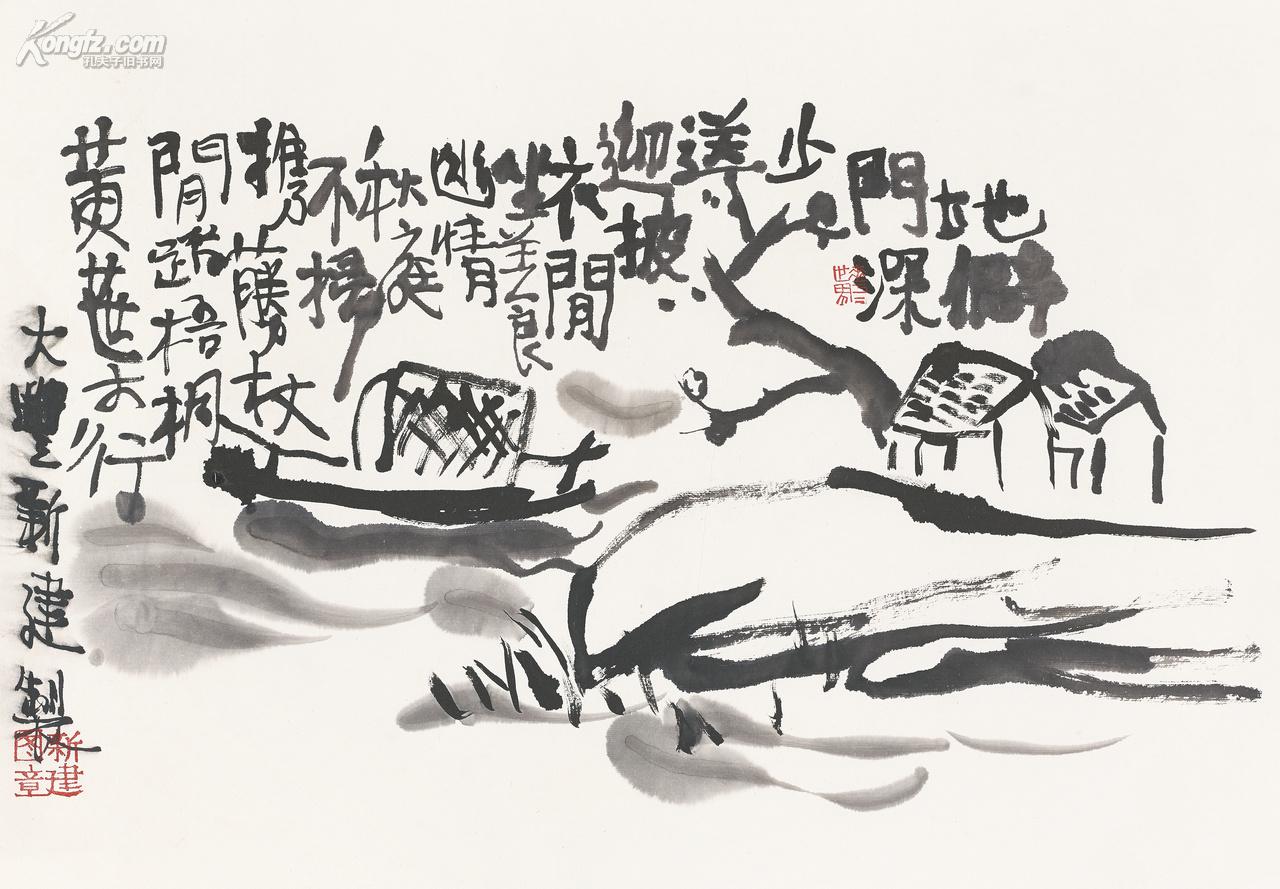 Kongfz.com
孔夫子旧书网
地僻
門深
少
送
迎披
衣閒
坐養
幽情
秋庭
不掃
攜藤杖
閒踏梧桐
黃葉行
大豐新建製
新建
图章